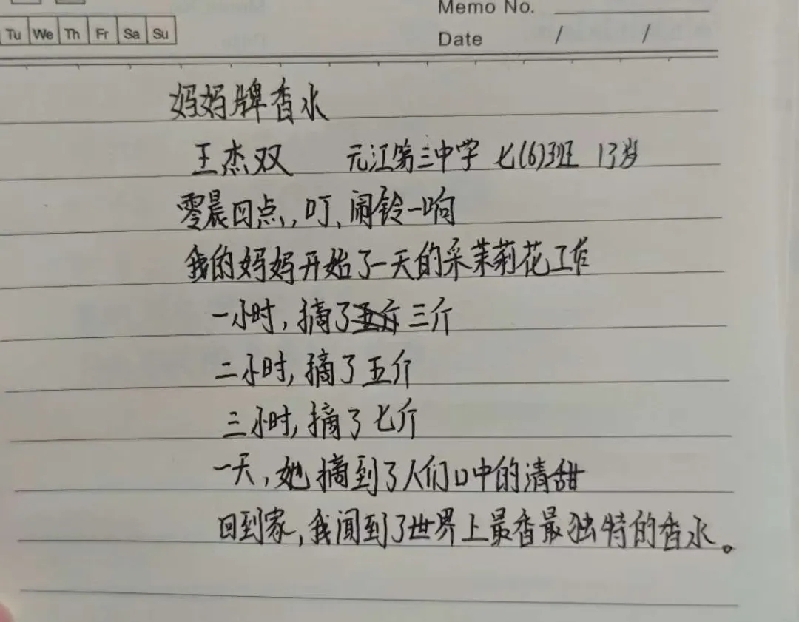 Memo No.
Tu We Th Fr Sa Su
Date / /
妈妈牌香水
王杰双 元江第三中学 七(6)班 13岁
零晨四点,叮,闹铃一响
我的妈妈开始了一天的采茉莉花工作
一小时,摘了五斤三斤
二小时,摘了五斤
三小时,摘了七斤
一天,她摘到了人们口中的清甜
回到家,我闻到了世界上最香最独特的香水。